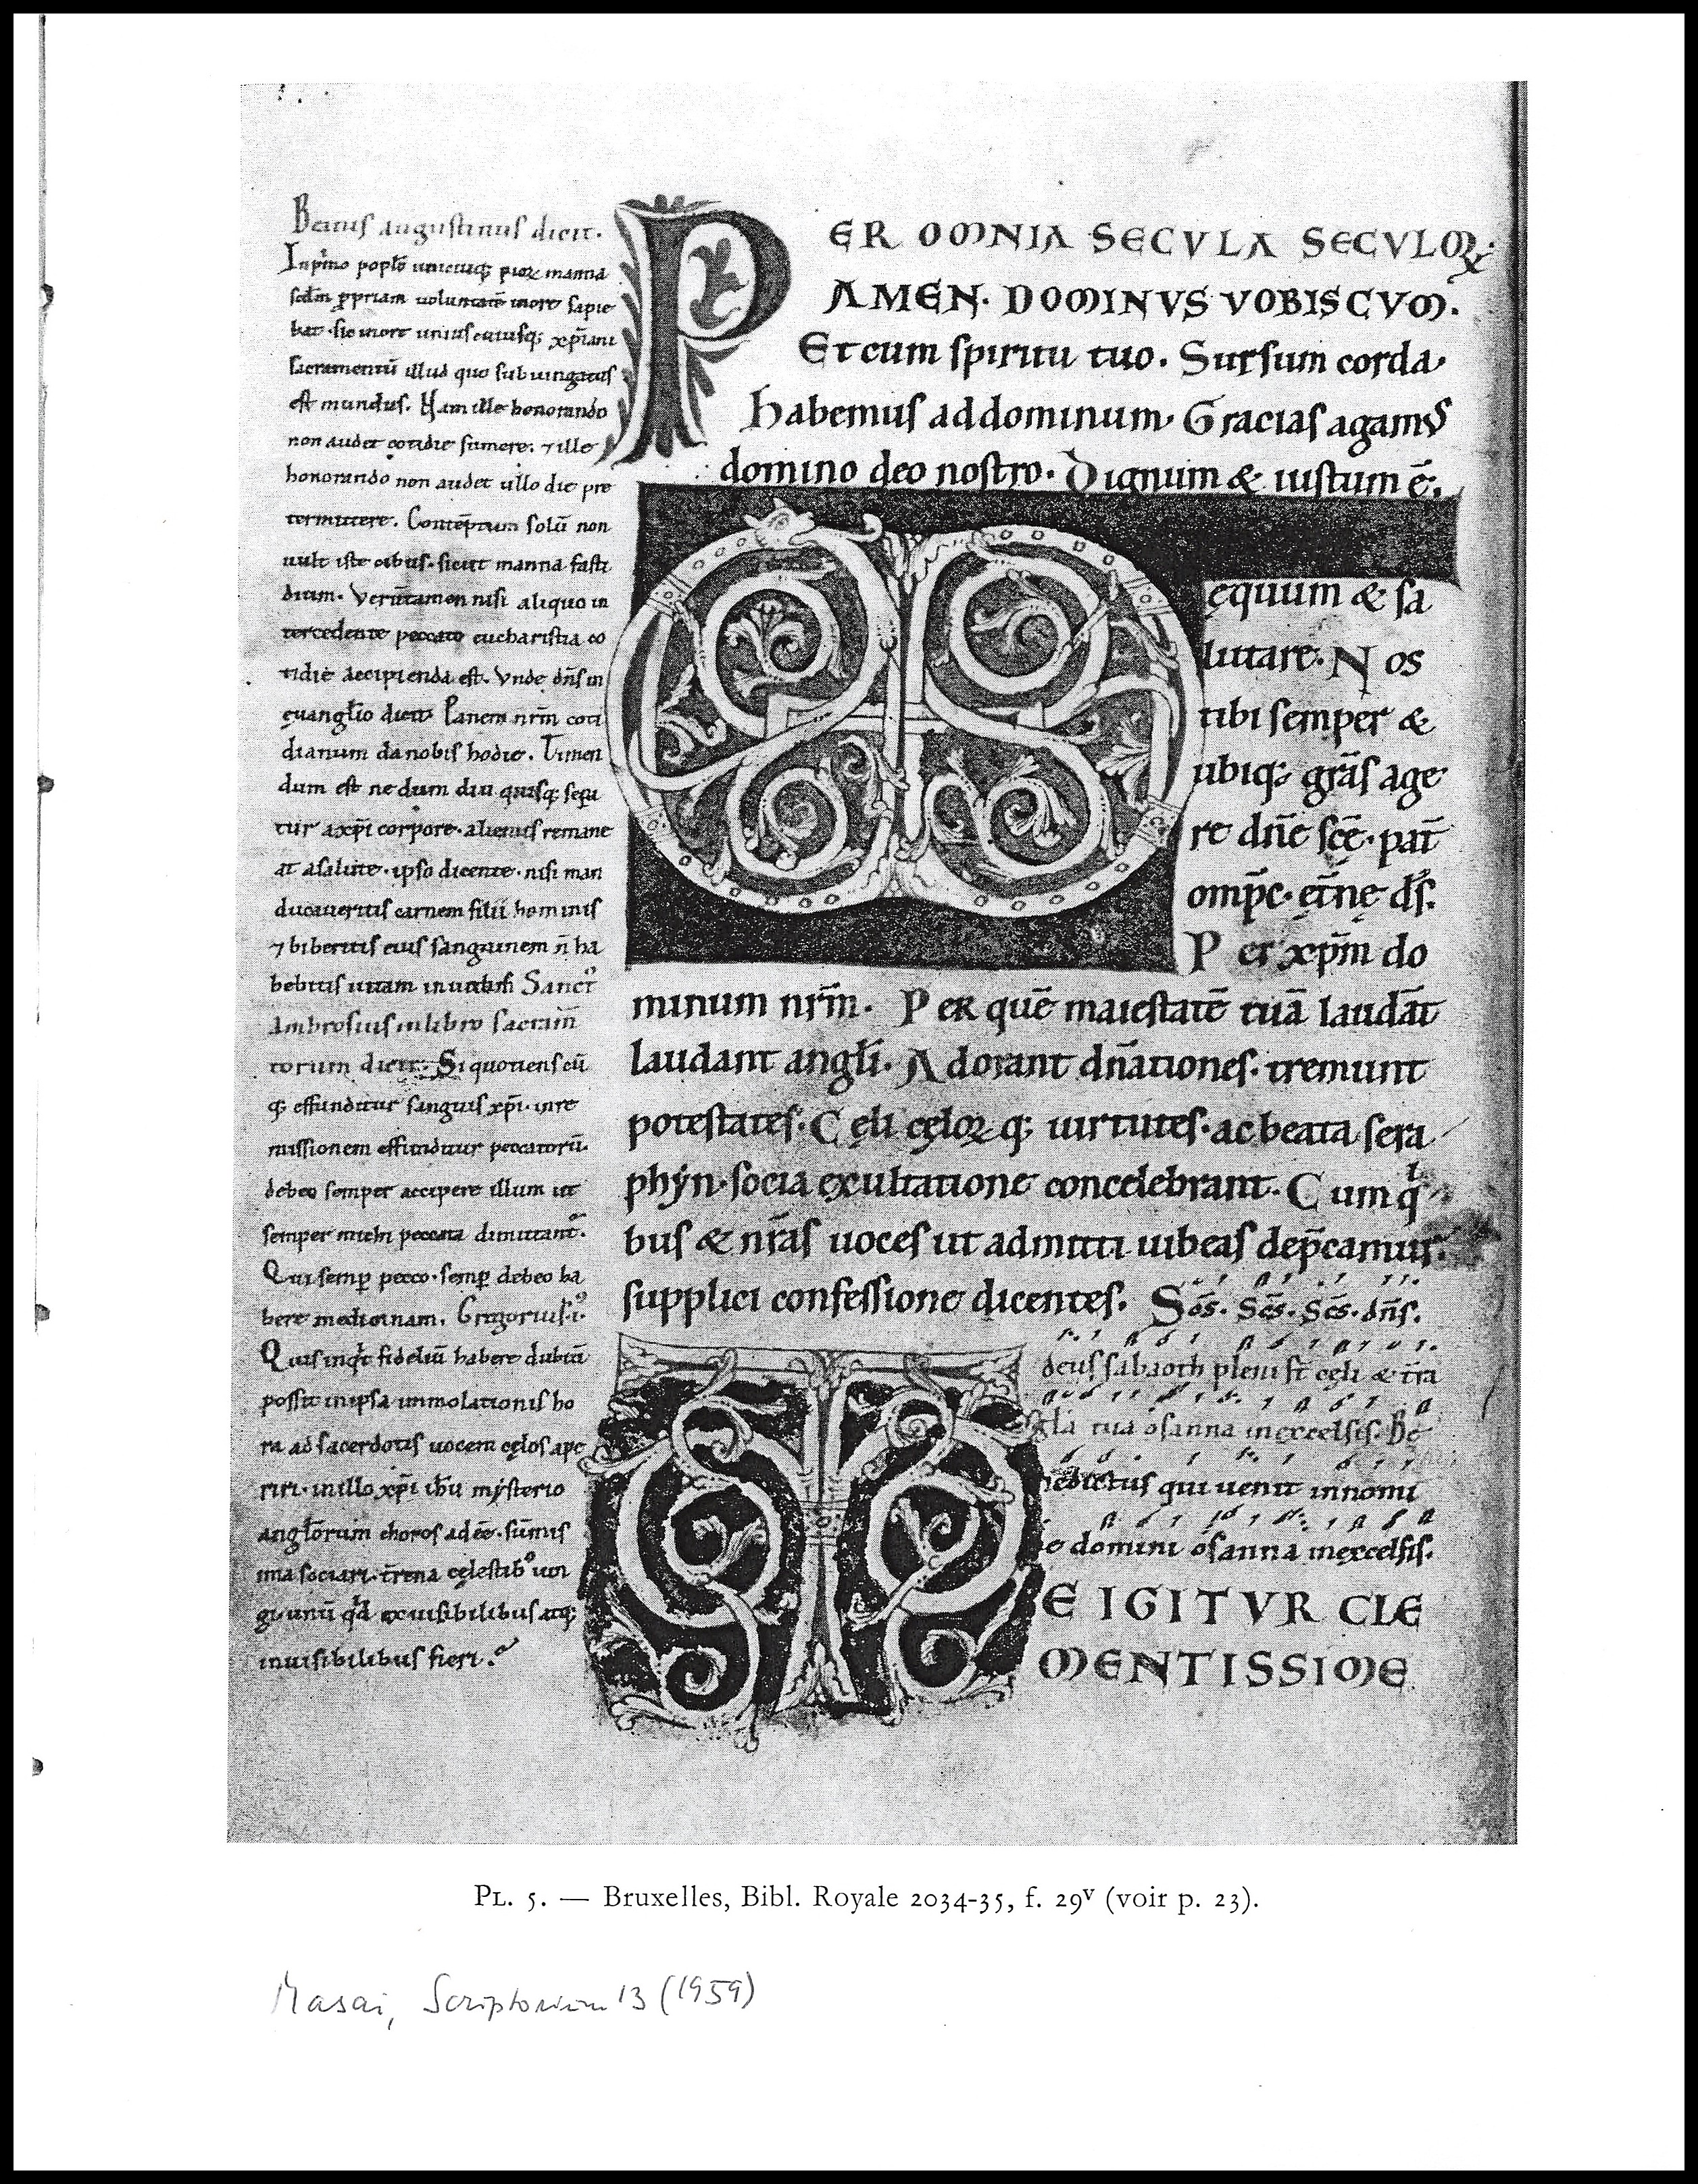 Beatus augustinus dicit.
In pͥmo popło unicuiq; pioꝝ manna
scdm ꝓpriam uoluntatē in ore sapie
bat · sic in ore uniuscuiusq; xp̄iani
sacramentū illud quo subiungatus
est mundus. Nam ille honorando
non audet cotidie sumere. ⁊ ille
honorando non audet ullo die pre
termittere. Contēptum solū non
uult iste cibus · sicut manna fasti
dium. Verūtamen nisi aliquo in
tercedente peccato eucharistia co
tidie accipienda est. Vnde dn̄s in
euangłio dicit Panem nrm̄ coti
dianum da nobis hodie. Timen
dum est ne dum diu quisq; sepa
tur a xp̄i corpore · alienus remane
at a salute · ipso dicente · nisi man
ducaueritis carnem filii hominis
⁊ biberitis eius sanguinem n̄ ha
bebitis uitam in uobis Sanctꝰ
Ambrosius in libro sacram̄
torum dicit. Si quotienscū
q; effunditur sanguis xp̄i · in re
missionem effunditur peccatorū.
debeo semper accipere illum ut
semper michi peccata dimittant᷑.
Qui semꝑ pecco · semꝑ debeo ha
bere medicinam. Gregorius · i ·
Quis inq̇t fideliū habere dubiū
possit in ipsa immolationis ho
ra ad sacerdotis uocem cęlos ape
riri · in illo xp̄i ih̄u mysterio
angłorum choros adeē · sūmis
ima sociari · tr̄ena cęlestibꝰ iun
gi · unū q̇d ex uisibilibus atq;
inuisibilibus fieri.
P ER OMNIA SECVLA SECVLOꝜ.
AMEN. DOMINVS VOBISCVM.
Et cum spiritu tuo. Sursum corda.
habemus ad dominum. Gracias agamus
domino deo nostro. Dignum & iustum ē.
equum & sa
lutare. Nos
tibi semper &
ubiq; grās age
re dn̄e scē · pat̄
omp̄c · etn̄ę ds̄.
Per xp̄m do
minum nrm̄. Per quē maiestatē tuā laudāt
laudant angłi. Adorant dn̄ationes · tremunt
potestates. Cęli cęloꝝ q; uirtutes · ac beata sera
phẏn · socia exultatione concelebrant. Cum qͥ
bus & nrā̄s uoces ut admitti iubeas dep̄camur.
supplici confessione dicentes. Scs̄. Scs̄. Scs̄. dn̄s.
deus sabaoth pleni st̄ cęli & tr̄a
głia tua osanna in excelsis. Be
nedictus qui uenit in nomi
e domini osanna in excelsis.
T E IGITVR CLE
MENTISSIME
Pl. 5. — Bruxelles, Bibl. Royale 2034-35, f. 29ᵛ (voir p. 23).
Masai, Scriptorium 13 (1959)